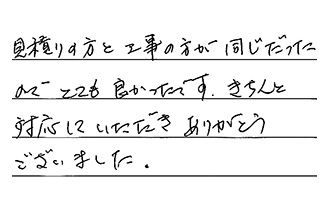 見積りの方と工事の方が同じだった
のでとても良かったです。きちんと
対応していただきありがとう
ございました。